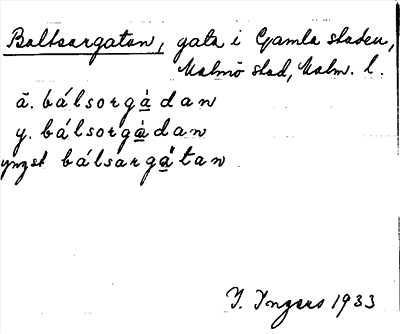 Baltsargatan, gata i Gamla staden,
Malmö stad, Malm. l.
ä. bálsorgàdan
y. bálsorgàdan
yngst bálsargàtan
I. Ingers 1933